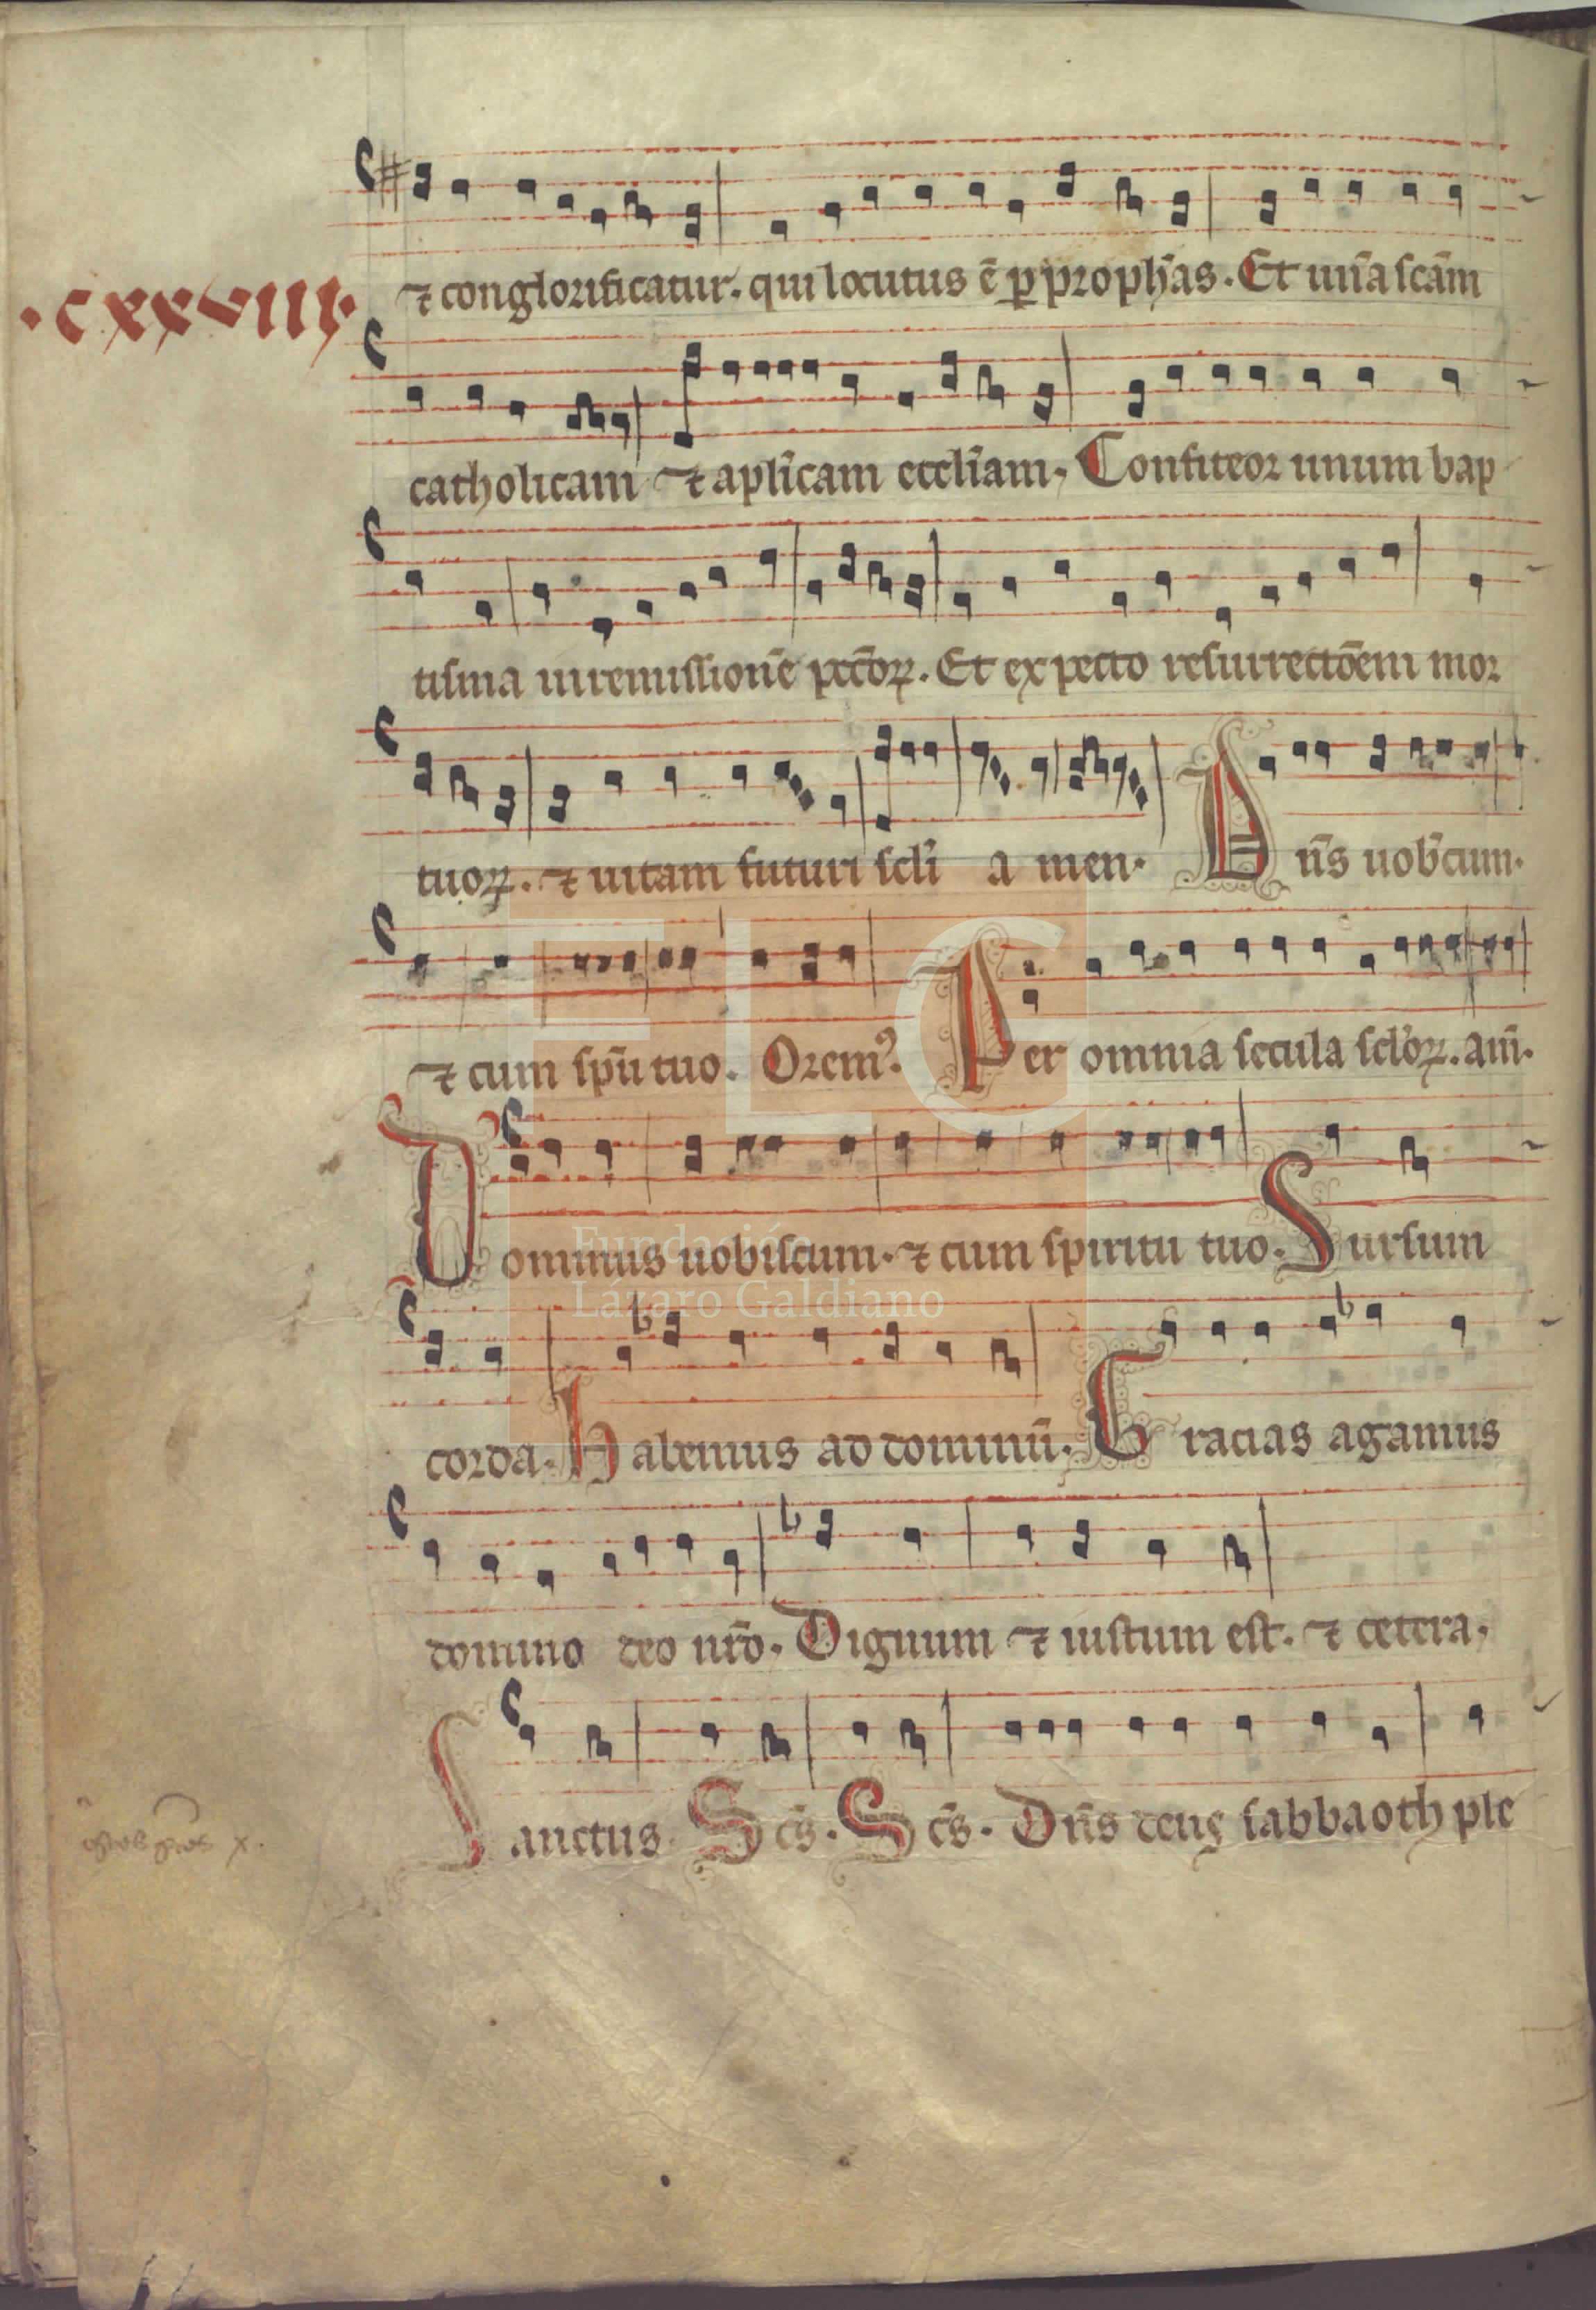 ⁊ conglorificatur. qui locutus ē ꝑ prophas. Et unā scām
.CXXVIII.
catholicam ⁊ aplicam eccliam. Confiteor unum bap
tisma in remissionē peccoꝝ. Et expecto resurrectōem mor
tuoꝝ. ⁊ uitam futuri scli amen. Dn̄s uobcum.
⁊ cum spū tuo. Oremꝰ. Per omnia secula scloꝝ. am̄.
Dominus uobiscum. ⁊ cum spiritu tuo. Sursum
corda. Habemus ad dominū. Gracias agamus
domino deo nr̄o. Dignum ⁊ iustum est. ⁊ cetera.
Sanctus. Sc̄s. Sc̄s. Dn̄s deus sabbaoth ple
FLG
Fundación
Lázaro Galdiano